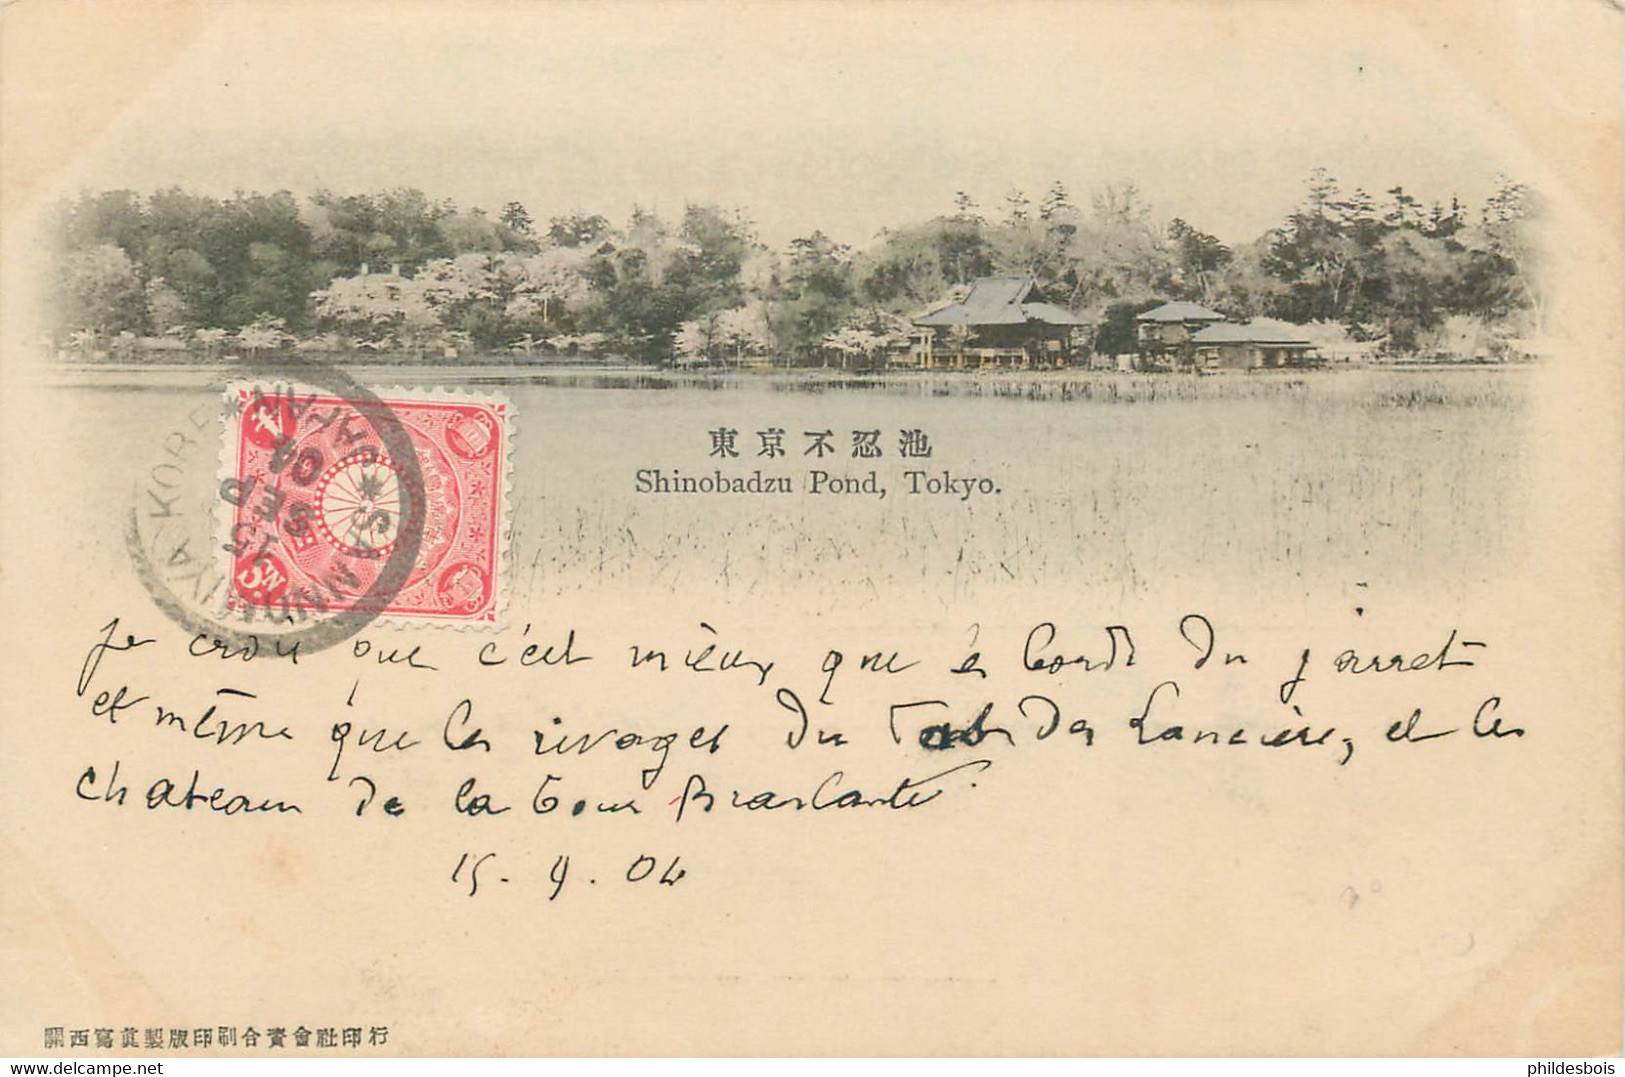 東京不忍池
Shinobadzu Pond, Tokyo.
4
5Sn.
JAPAN
04
SEP
15
KOREA
je crois que c'est mieux que les bords du jarret
et même que les rivages du des Lancière, et les
chateaux de la Tour Branlante.
15. 9. 04
關西寫眞製版印刷合資會社印行
phildesbois